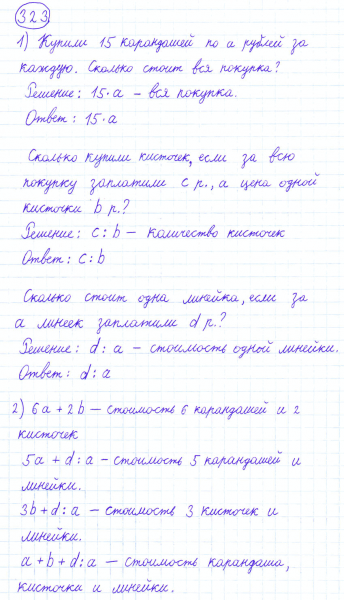 323
1) Купили 15 карандашей по а рублей за
каждую. Сколько стоит вся покупка?
Решение: 15·а – вся покупка.
Ответ: 15·а
Сколько купили кисточек, если за всю
покупку заплатили с р., а цена одной
кисточки b р.?
Решение: с:b – количество кисточек
Ответ: с:b
Сколько стоит одна линейка, если за
а линеек заплатили d р.?
Решение: d:а – стоимость одной линейки.
Ответ: d:а
2) 6а+2b – стоимость 6 карандашей и 2
кисточек
5а+d:а – стоимость 5 карандашей и
линейки.
3b+d:а – стоимость 3 кисточек и
линейки.
а+b+d:а – стоимость карандаша,
кисточки и линейки.